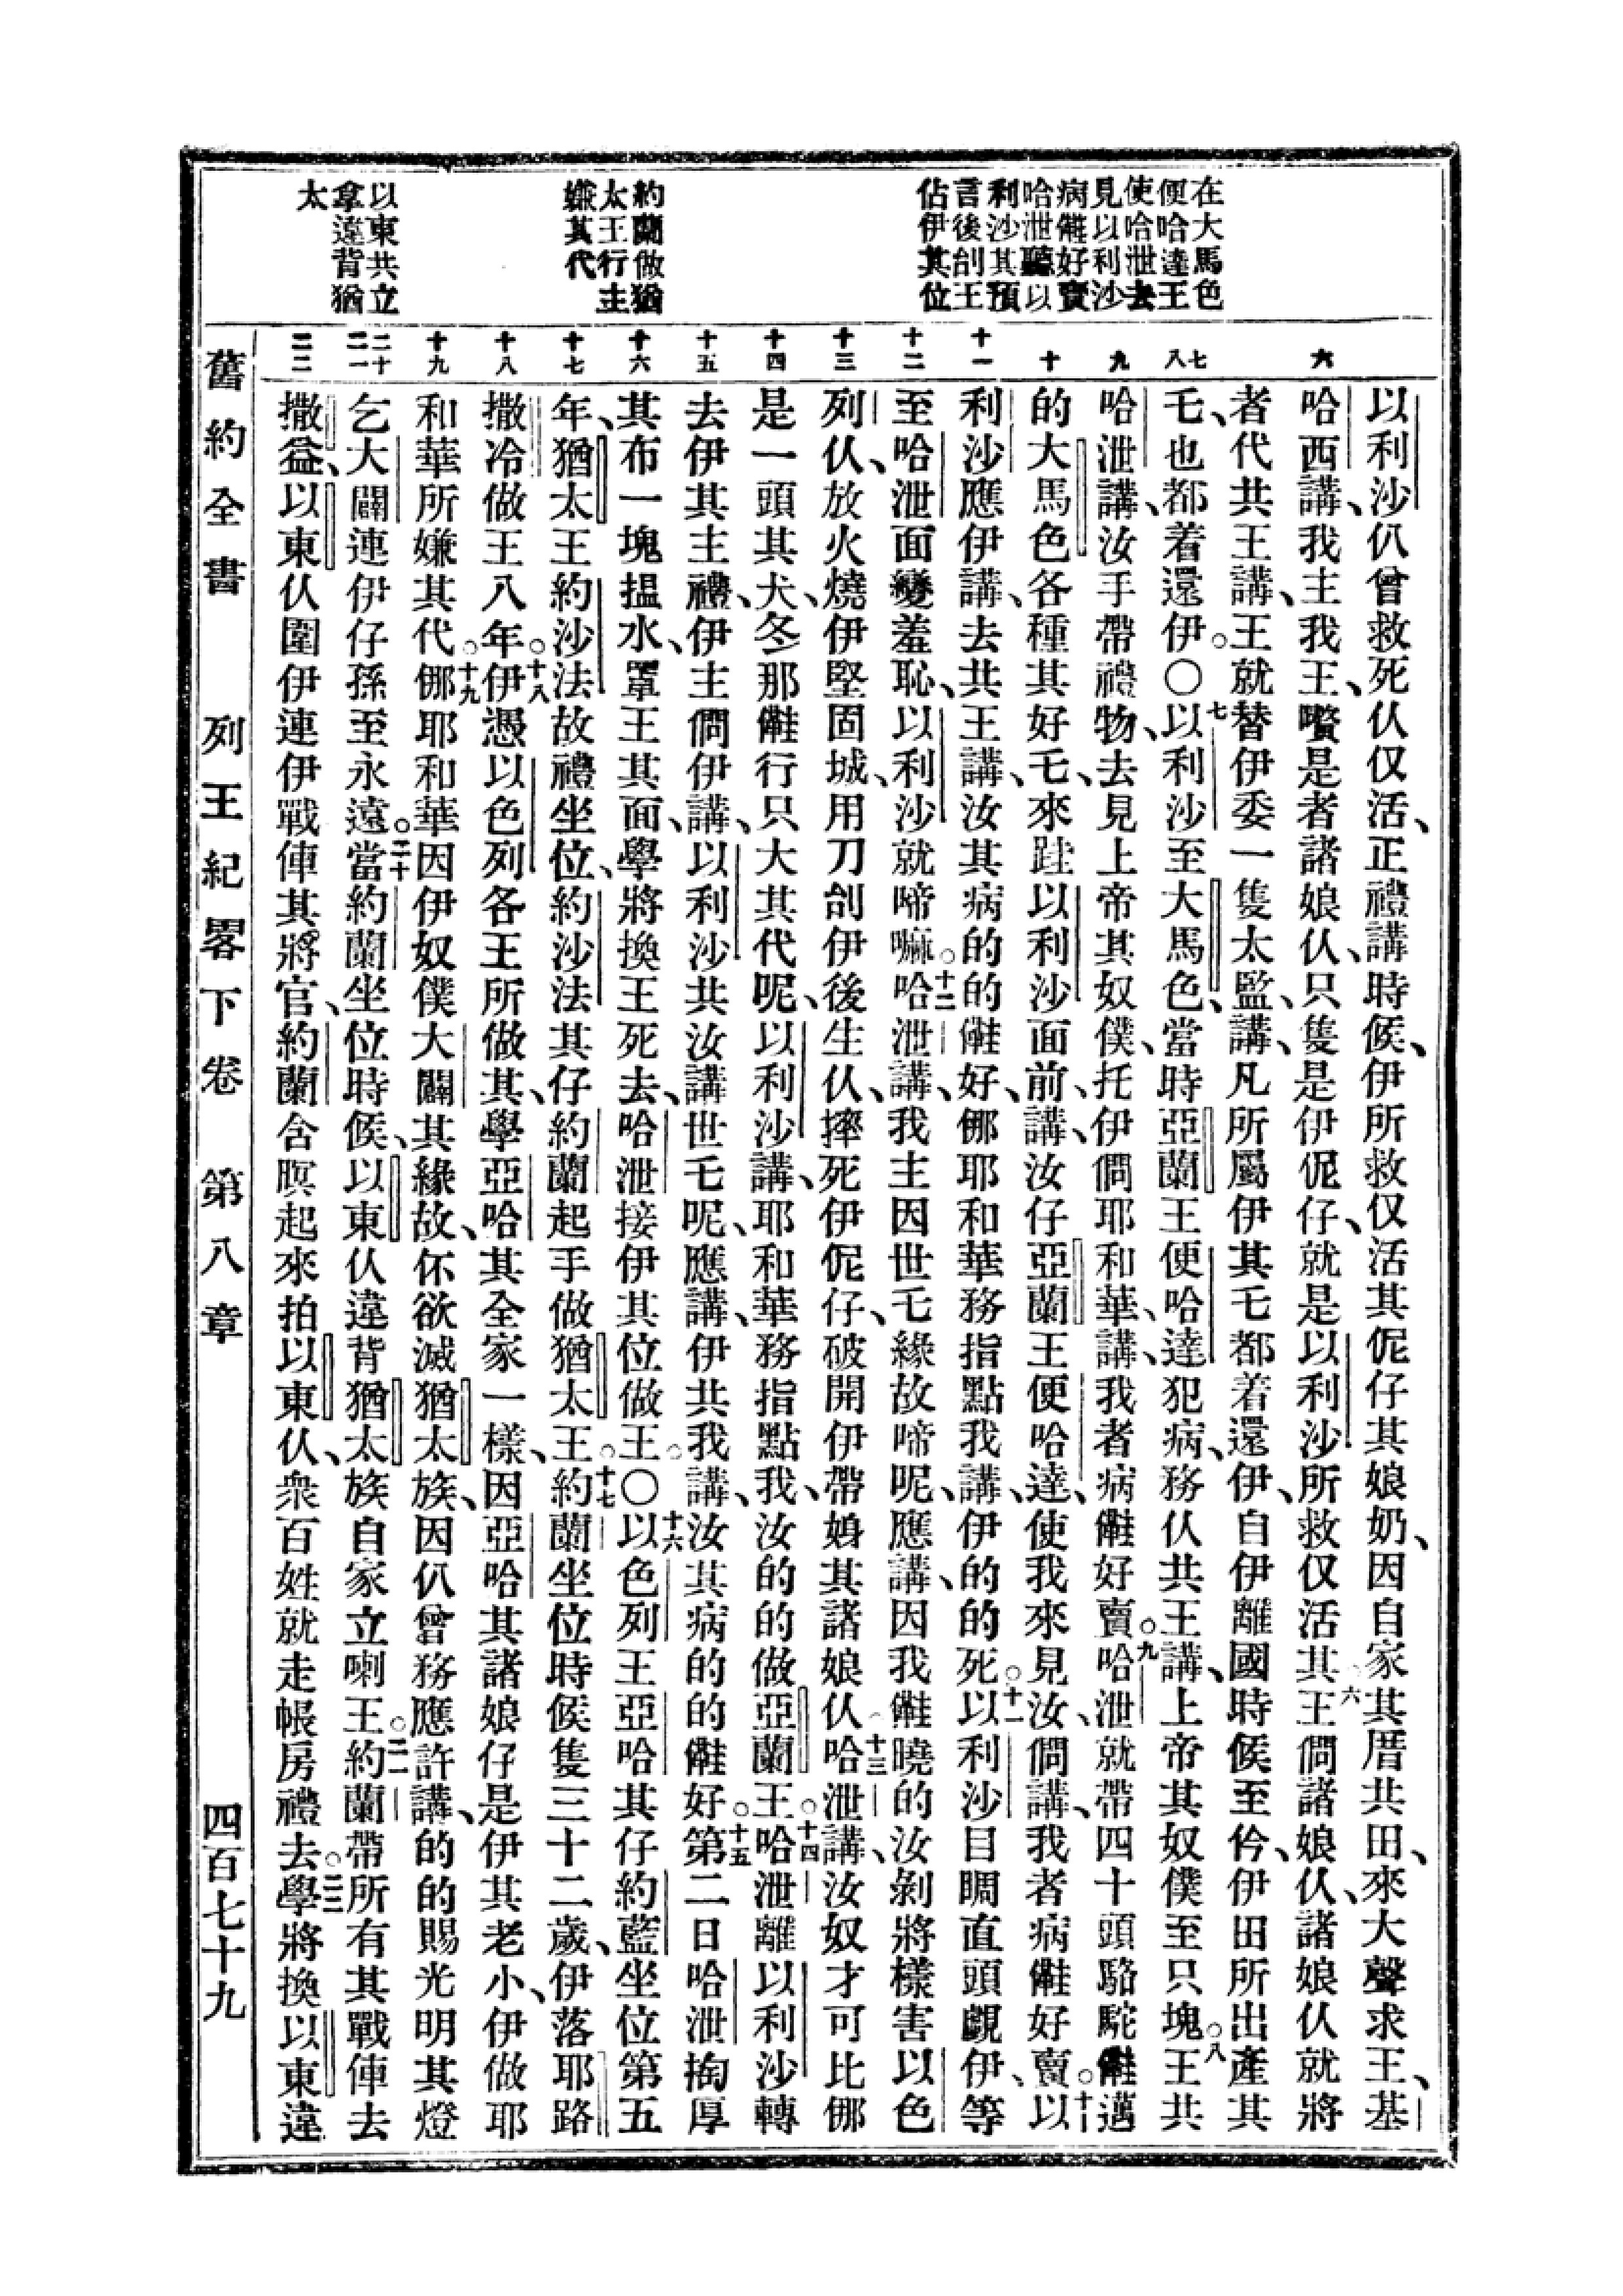 在大馬色
便哈達王
使哈泄去
見以利沙
病𣍐好賣
哈泄聽以
利沙其預
言後刣王
佔伊其位
約蘭做猶
太王行主
嫌其代
以東共立
拿違背猶
太
六
七
八
九
十
十一
十二
十三
十四
十五
十六
十七
十八
十九
二十
二一
二二
以利沙仈曾救死仈仅活、正禮講時候、伊所救仅活其伲仔其娘奶、因自家其厝共田、來大聲求王、基
哈西講、我主我王、嚽是者諸娘仈、只隻是伊伲仔、就是以利沙所救仅活其。六王問諸娘仈、諸娘仈就將
者代共王講、王就替伊委一隻太監、講、凡所屬伊其乇都着還伊、自伊離國時候至仱、伊田所出產其
乇、也都着還伊。〇七以利沙至大馬色、當時亞蘭王便哈達犯病、務仈共王講、上帝其奴僕至只塊。八王共
哈泄講、汝手帶禮物、去見上帝其奴僕、托伊問耶和華、講、我者病𣍐好賣。九哈泄就帶四十頭駱駝𣍐邁
的大馬色各種其好乇、來跍以利沙面前、講、汝仔亞蘭王便哈達、使我來見汝、問講、我者病𣍐好賣。十以
利沙應伊講、去共王講、汝其病的的𣍐好、㑚耶和華務指點我講、伊的的死。十一以利沙目睭直頭覷伊、等
至哈泄面變羞恥、以利沙就啼嘛。十二哈泄講、我主因世乇緣故啼呢、應講、因我𣍐曉的汝剝將樣害以色
列仈、放火燒伊堅固城、用刀刣伊後生仈、摔死伊伲仔、破開伊帶娠其諸娘仈。十三哈泄講、汝奴才可比㑚
是一頭其犬、冬那𣍐行只大其代呢、以利沙講、耶和華務指點我、汝的的做亞蘭王。十四哈泄離以利沙轉
去伊其主禮、伊主問伊講、以利沙共汝講世乇呢、應講、伊共我講、汝其病的的𣍐好。十五第二日哈泄掏厚
其布一塊揾水、罩王其面、學將換王死去、哈泄接伊其位做王。〇十六以色列王亞哈其仔約藍坐位第五
年、猶太王約沙法故禮坐位、約沙法其仔約蘭起手做猶太王。十七約蘭坐位時候隻三十二歲、伊落耶路
撒冷做王八年。十八伊憑以色列各王所做其、學亞哈其全家一樣、因亞哈其諸娘仔是伊其老小、伊做耶
和華所嫌其代。十九㑚耶和華因伊奴僕大闢其緣故、伓欲滅猶太族、因仈曾務應許講、的的賜光明其燈
乞大闢連伊仔孫至永遠。二十當約蘭坐位時候、以東仈違背猶太族自家立喇王。二一約蘭帶所有其戰俥去
撒益、以東仈圍伊連伊戰俥其將官、約蘭含暝起來拍以東仈、衆百姓就走帳房禮去。二二學將換以東違
舊約全書 列王紀畧下卷 第八章 四百七十九